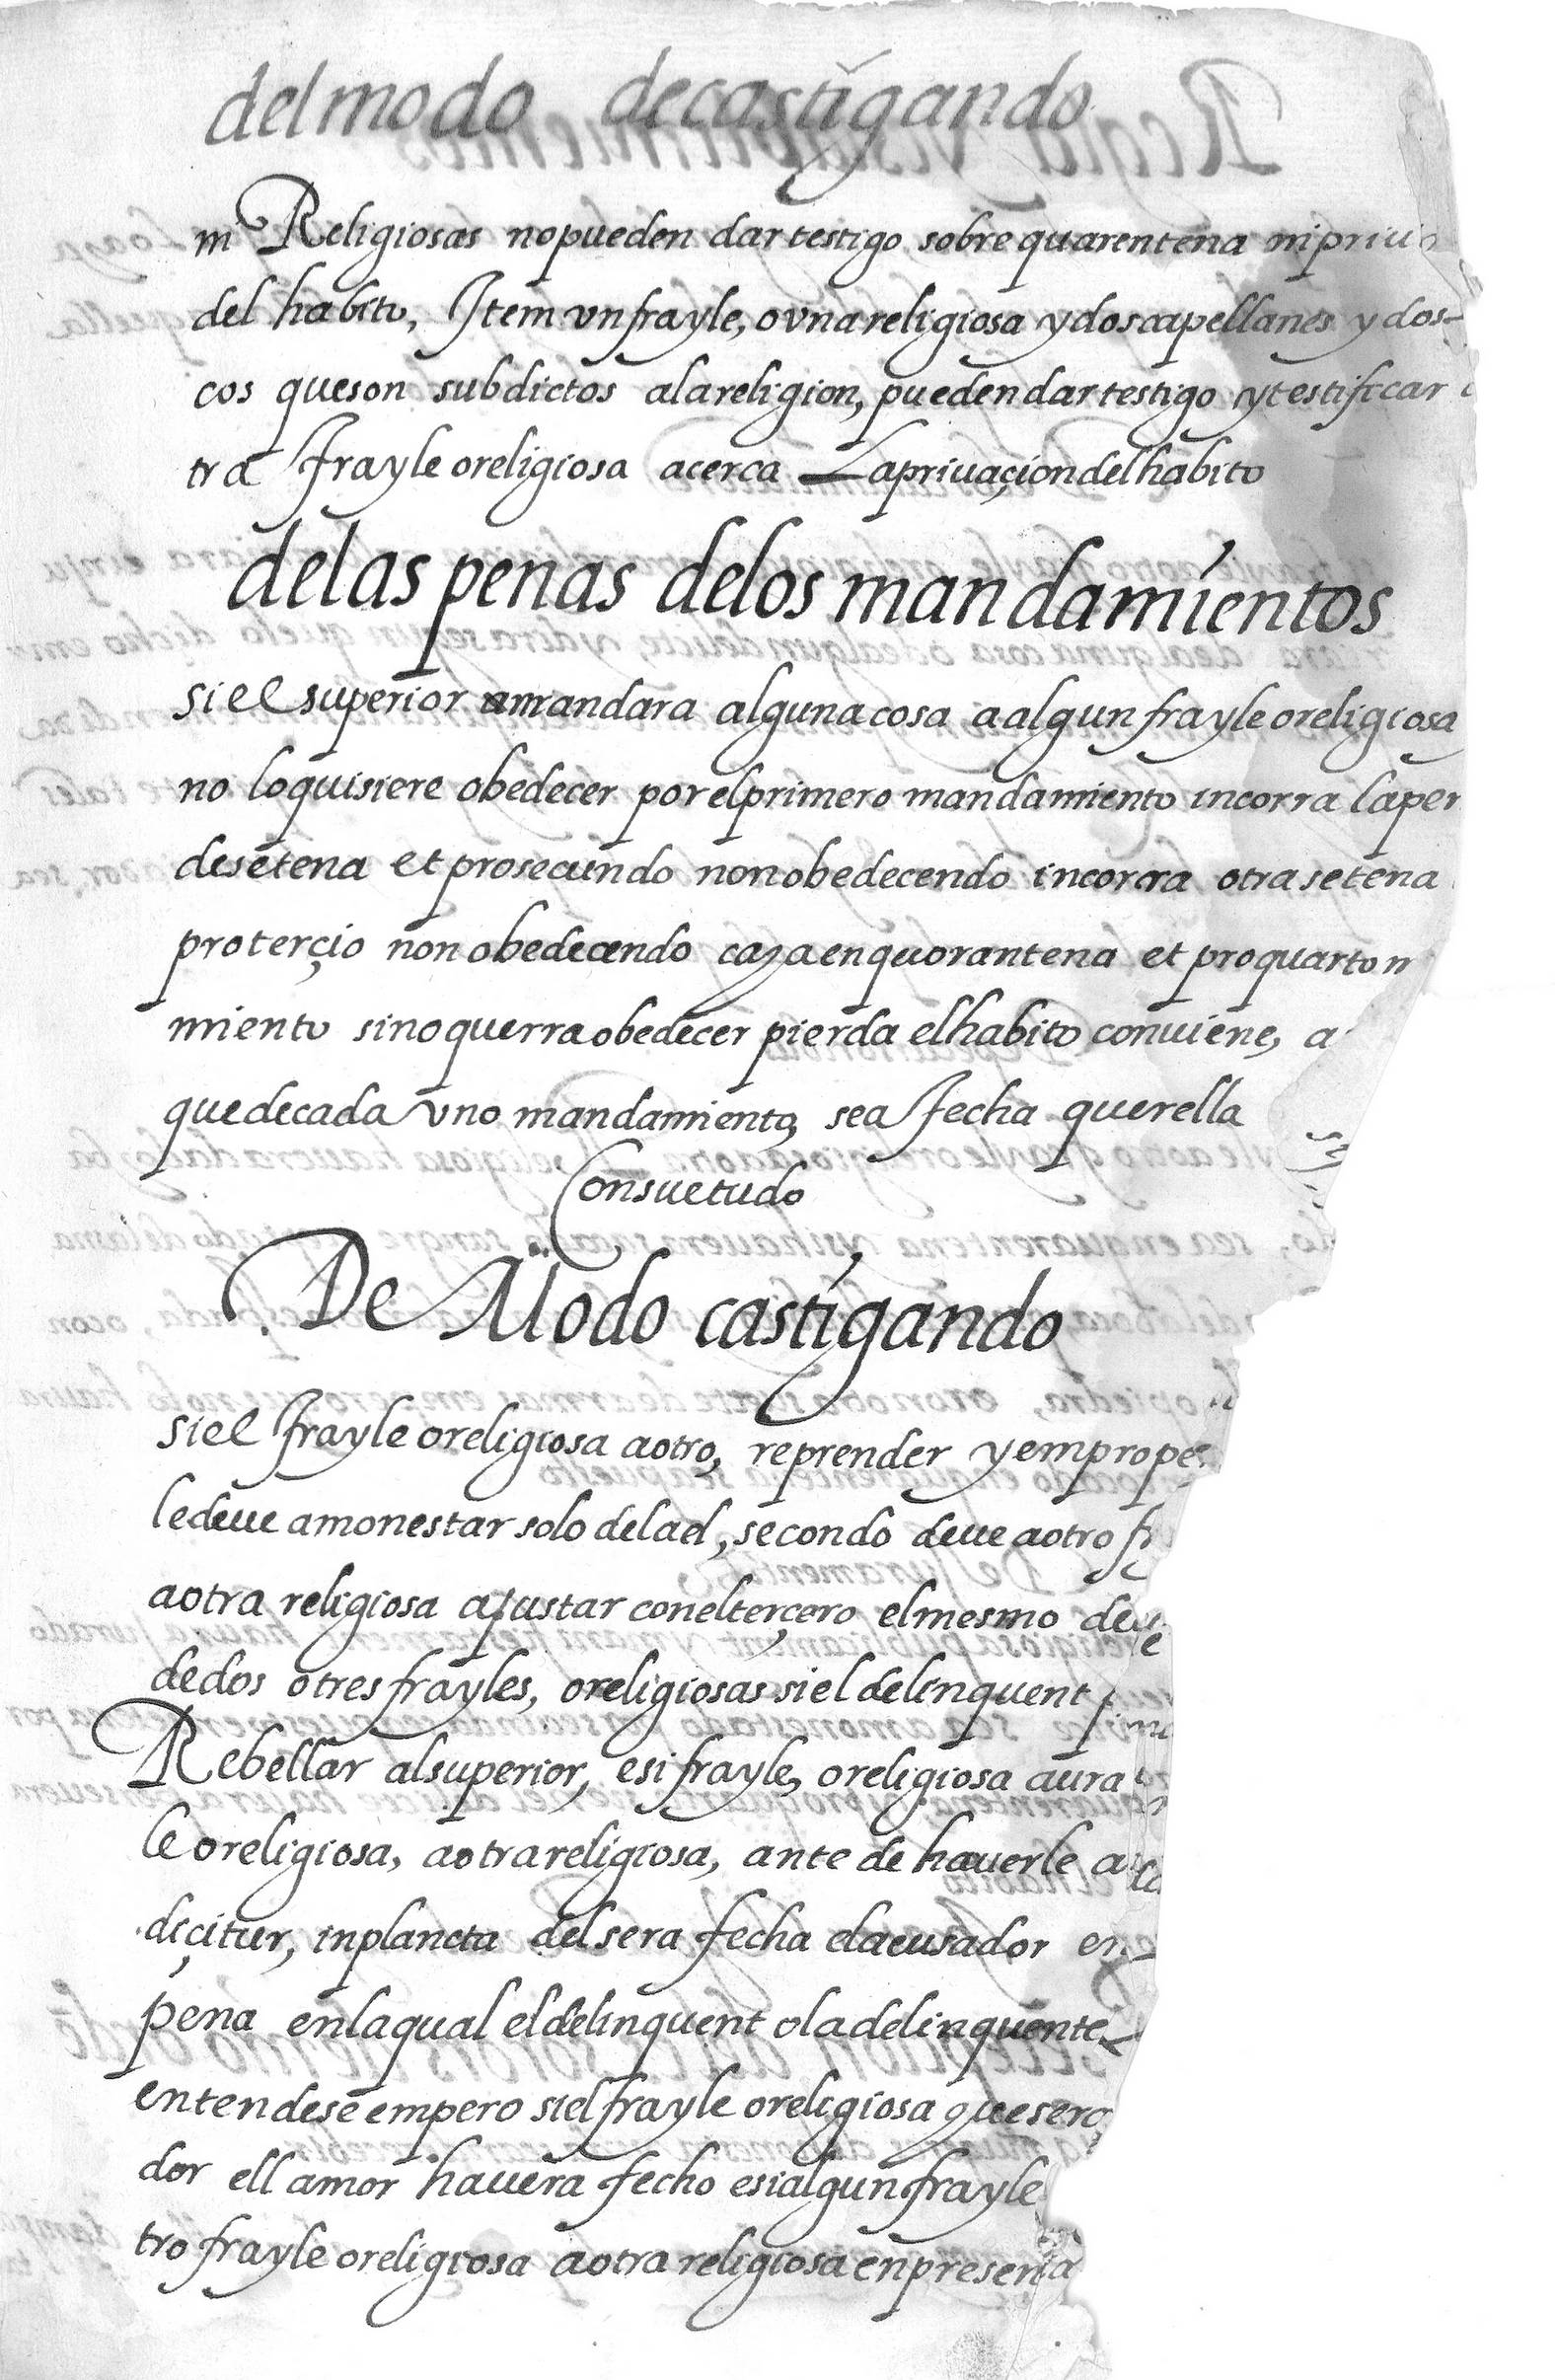 delmodo decastigando
ni Religiosas nopueden dar testigo sobre quarentena ni
del habito, Item vn frayle, o vna religiosa y dos capellanes y dos
cos queson subdictos ala religion, pueden dar testigo y testificar
tra frayle o religiosa acerca La privaçion del habito
delas penas delos mandamientos
si el superior mandara alguna cosa a algun frayle o religiosa
no lo quisiere obedecer por el primero mandamiento incorra la
de setena et pro secundo non obedecendo incorra otra setena
pro terçio non obedecendo caya en quorantena et pro quarto
miento sino querra obedecer pierda el habito conuiene, a
que de cada vno mandamiento, sea fecha querella
Consuetudo
De Modo castigando
si el frayle o religiosa a otro, reprender y
le deue amonestar solo del ael, secondo deue a otro
a otra religiosa ajustar con el terçero el mesmo deue
de dos o tres frayles, o religiosas si el delinquent
Rebellar al superior, e si frayle, o religiosa aura
le o religiosa, a otra religiosa, ante de hauerle
diçitur, in plancta del sera fecha el acusador
pena en la qual el delinquent o la delinquente
entendese empero si el frayle o religiosa que
dor ell amor hauera fecho e si algun frayle
tro frayle o religiosa a otra religiosa en